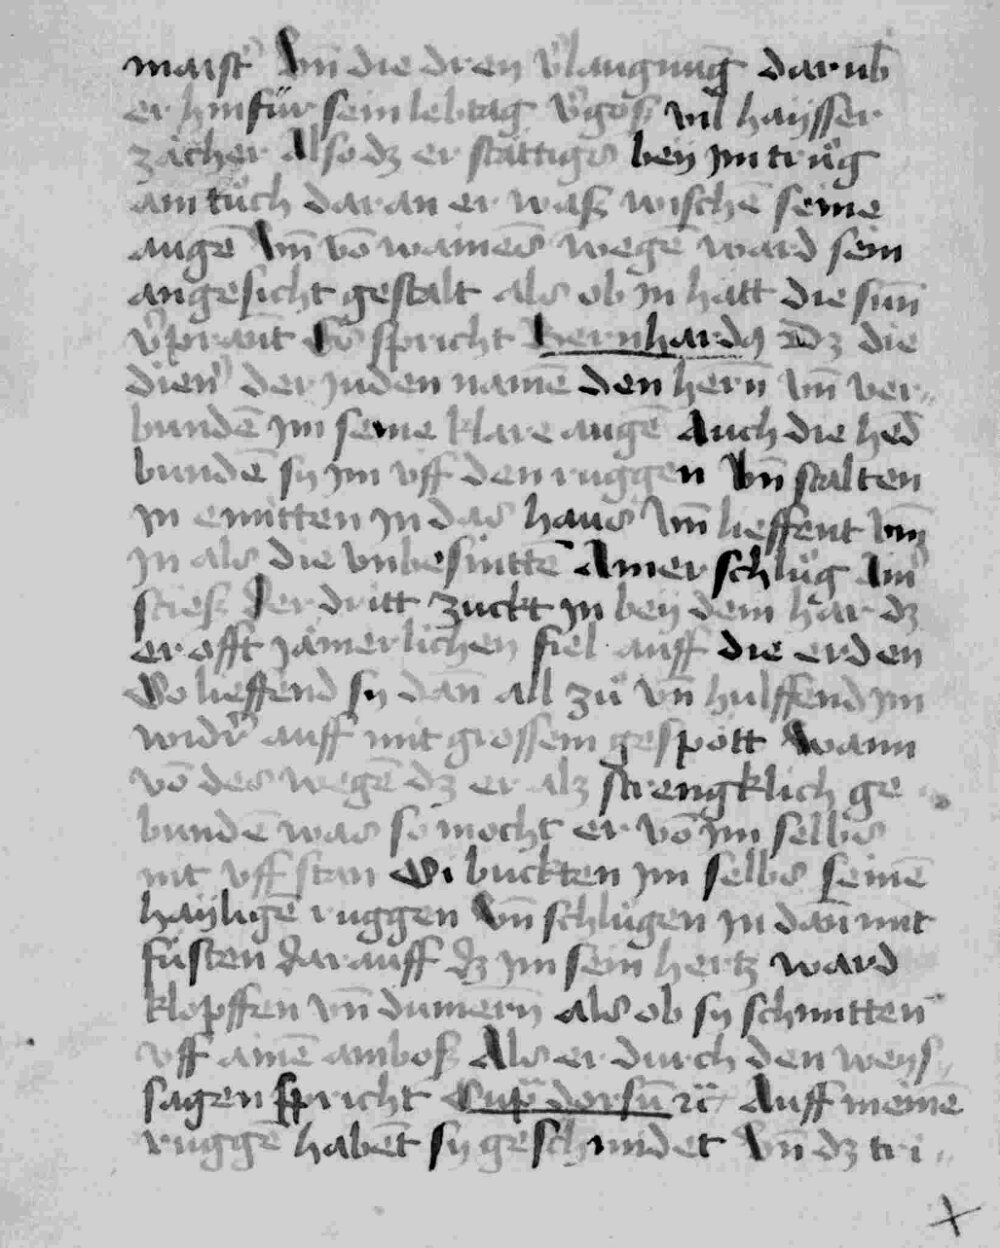 maist' Vn̄ die dren v'laugnuḡ darub̄
er hinfür sein lebtag v'gos vil haÿsser
zächer Also dz er stättigs beÿ jm trůg
ain tůch daran er was wischē seine
augē Vn̄ vō wainēs wegē ward sein
angesicht gestalt als ob jn hatt die sun̄
v'prant Es spricht Bernhardꝰ Dz die
dien' der juden namē den hern̄ vn̄ ver„
bundē jm seine klare augē Auch die hēd
bundē sy jm vff den ruggen Vn̄ stalten
jn enmitten jn das haus Vn̄ lieffent vm̄
jn als die vnbesintē Ainer schlůg Ain'
sties Der dritt zuckt jn beÿ dem här dz
er offt jämerlichen fiel auff die erden
So lieffend sy dan̄ all zů vn̄ hulffend jm
wid'r auff mit grossem gespött Wann
vō des wegē dz er alz strengklich ge
bundē was so mocht er vō jm selbs
nit vff stan Si buckten jm selbs seinē
haÿligē ruggen Vn̄ schlůgen jn dan̄ mit
füsten darauff dz jm sein hertz ward
klopffen vn̄ dumern̄ als ob sy schmitten
vff ainē ambos Als er durch den weys„
sagen spricht Sup dorsū rc̄ Auff meinē
ruggē habēt sy geschmidet Vn̄ dz tri„